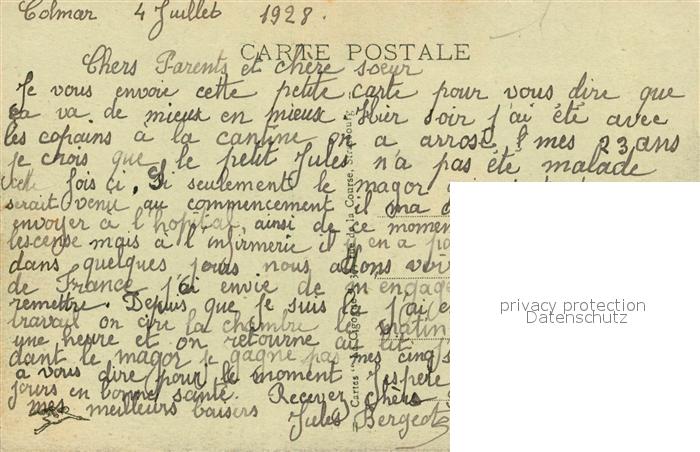 Colmar 4 Juillet 1928.
CARTE POSTALE
Chers Parents et chère soeur
Je vous envoie cette petite carte pour vous dire que
ça va de mieux en mieux. Hier soir j'ai été avec
les copains à la cantine on a arrosé mes 23 ans
je crois que le petit Jules n'a pas été malade
cette fois ci, Si seulement le major
serait venu au commencement il m'a
envoyer à l'hopital, ainsi de ce
mais à l'infirmerie il en a
dans quelques jours nous allons
de France j'ai envie de
remettre. Depuis que je suis là j'ai
travail on cire la chambre le matin
une heure et on retourne au lit
dant le major je gagne pas mes cinq
à vous dire pour le moment J'espère
jours en bonne santé. Recevez chers
mes meilleurs baisers
Jules Bergeot
privacy protection
Datenschutz
de la Course, Strasbourg
Cartes "La Cigogne"